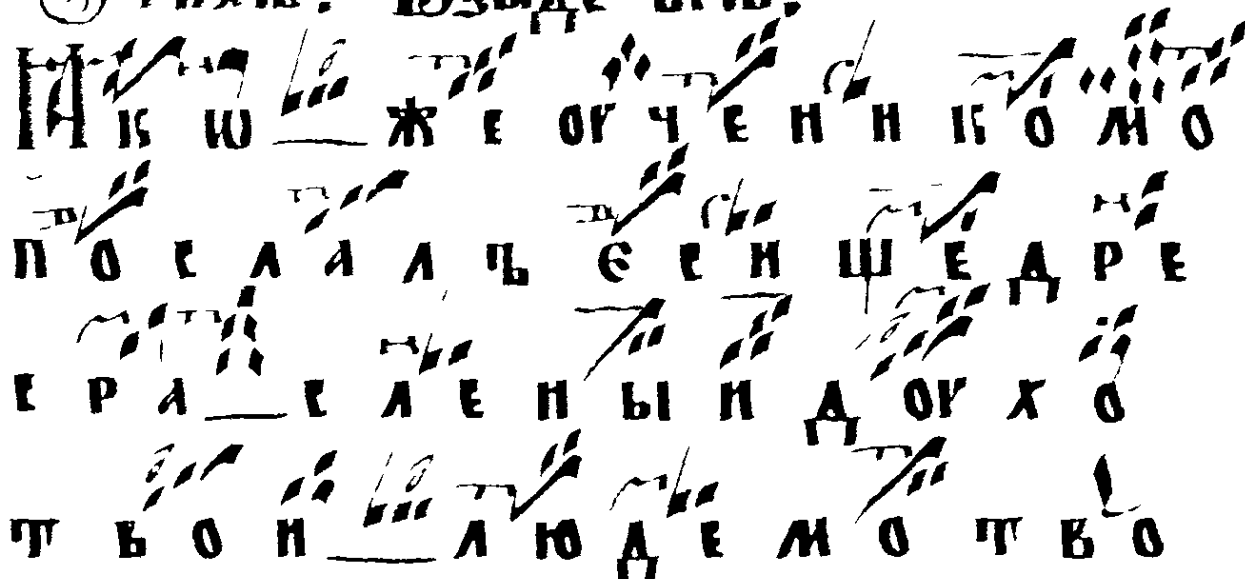 Ꙗкѡ же ѹчеником о
послалъ єси щедре
сра сленыи дѹхо
твои людемо тво